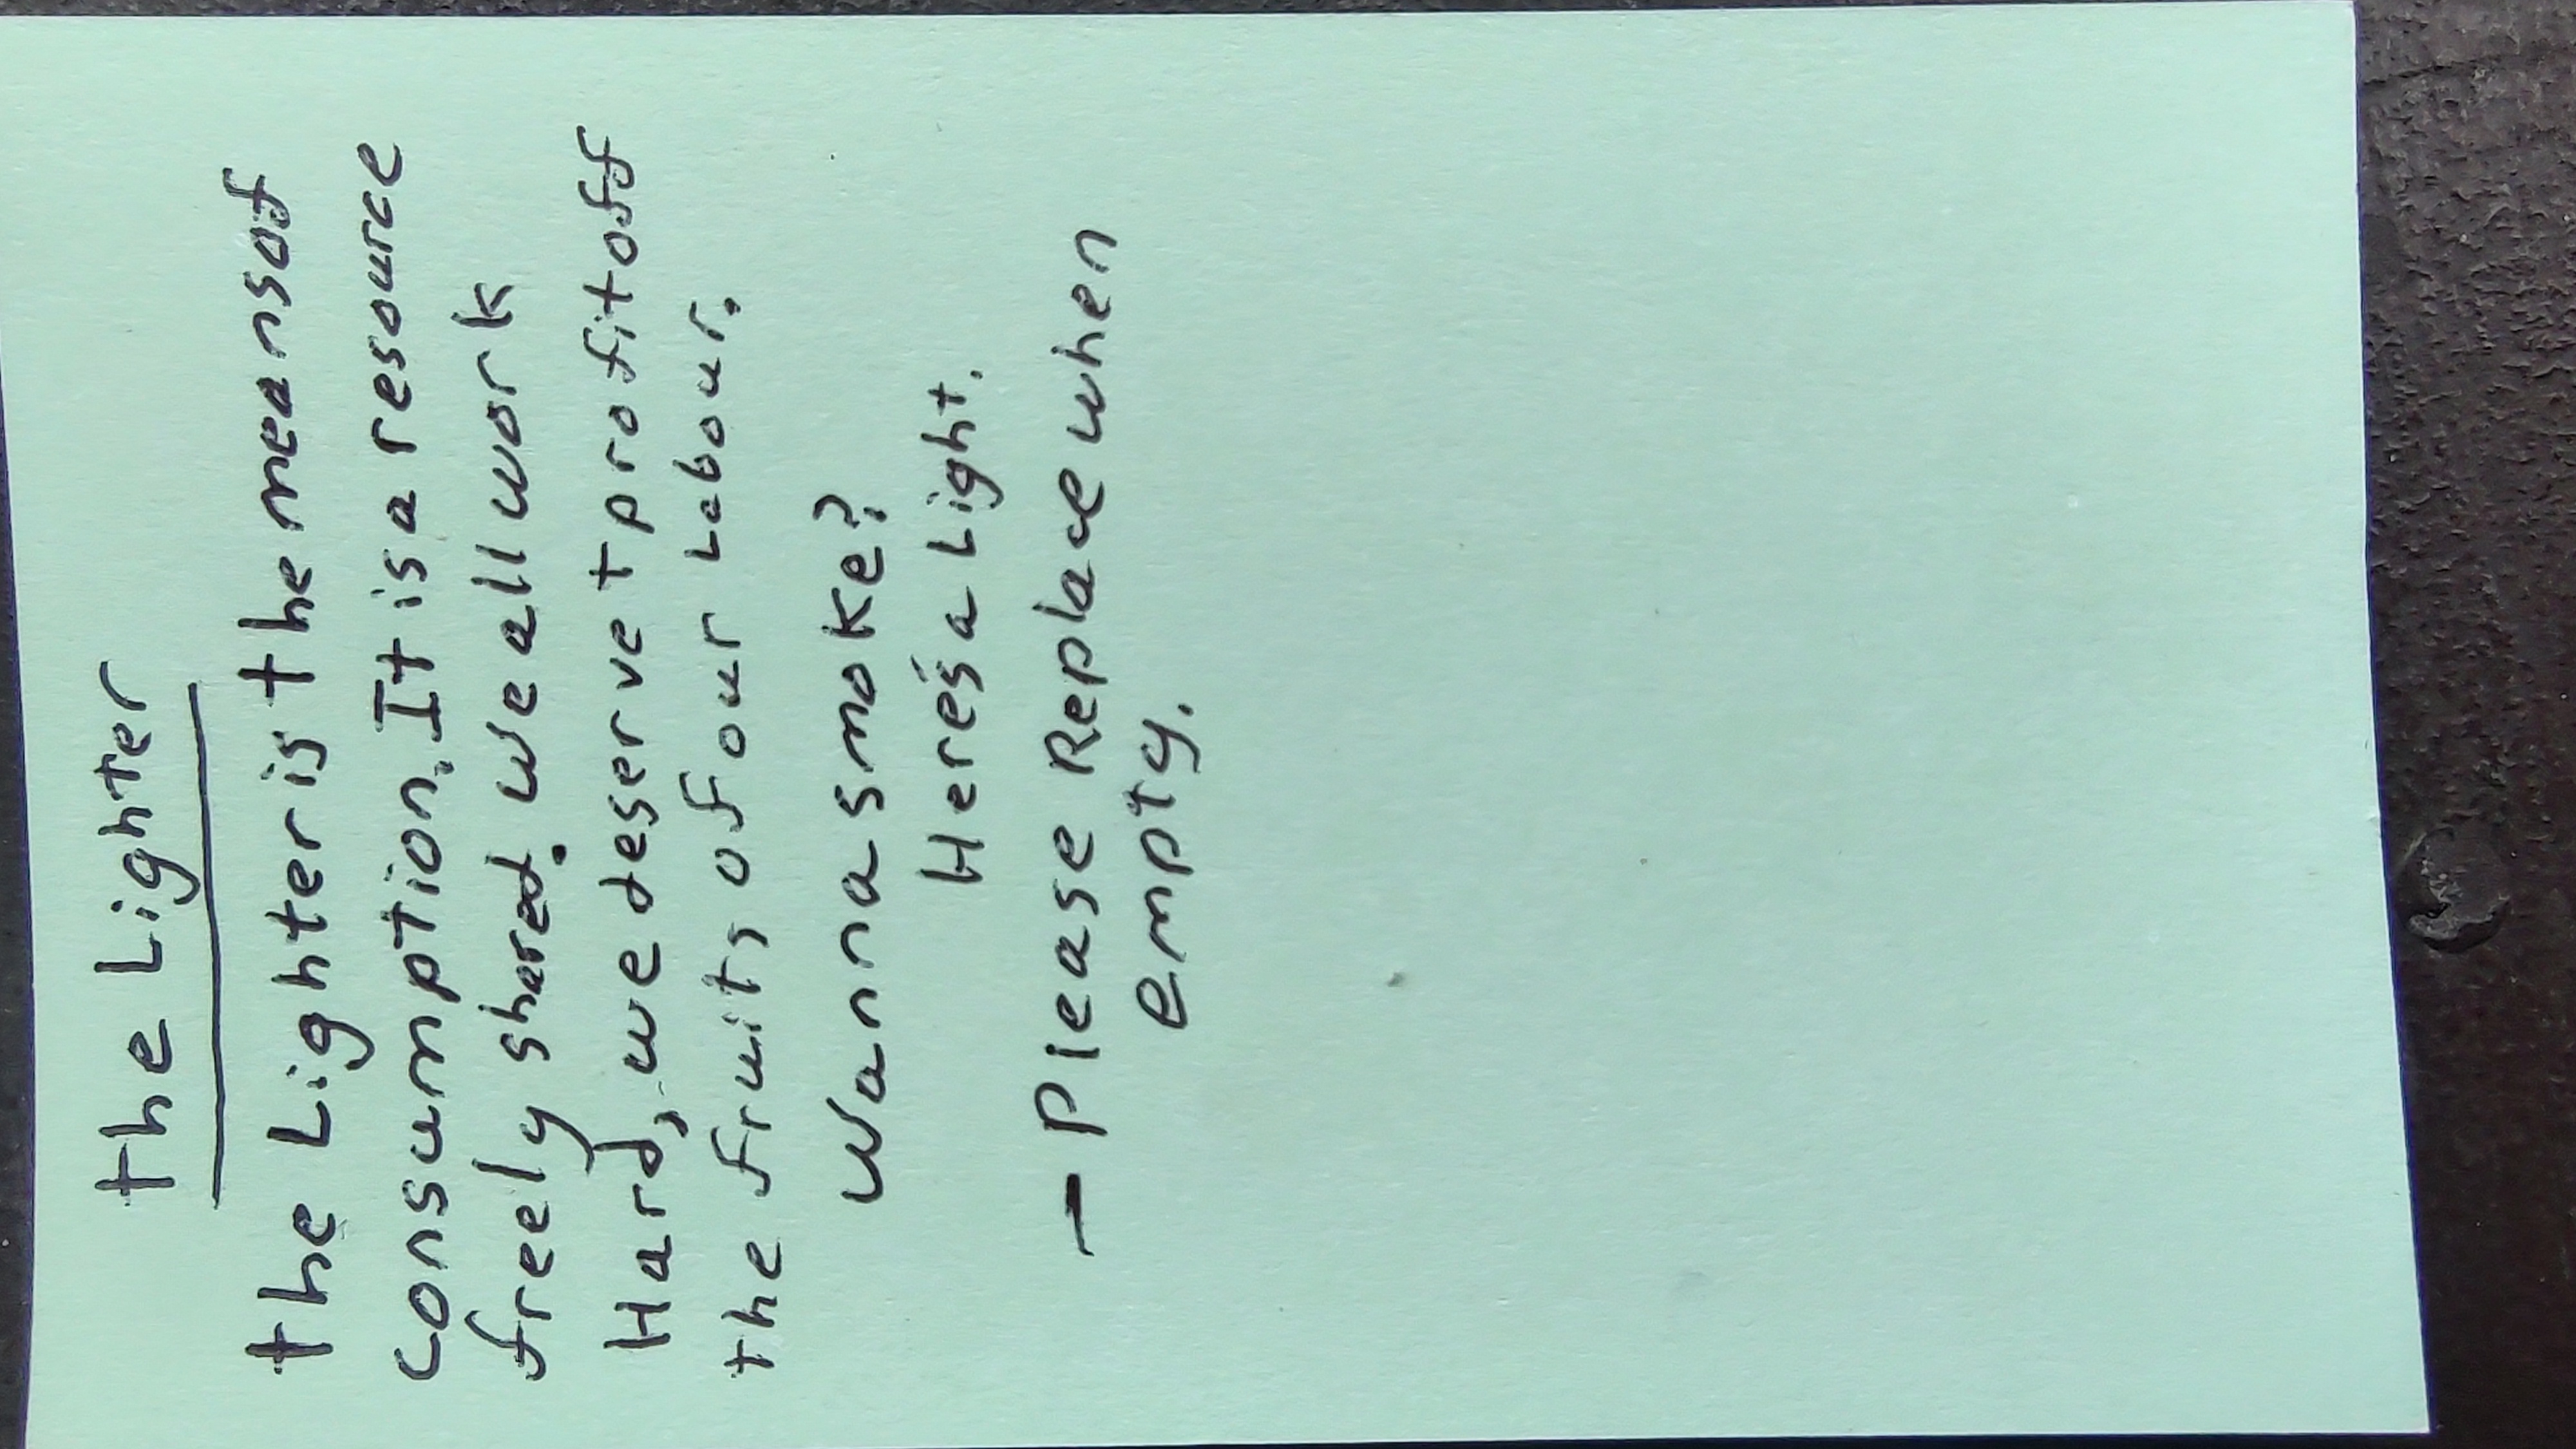 the Lighter
the Lighter is the means of
consumption. It is a resource
freely shared. we all work
Hard, we deserve t profit off
the fruits of our Labour.
wanna smoke?
Here's a Light.
- Please Replace when
empty.